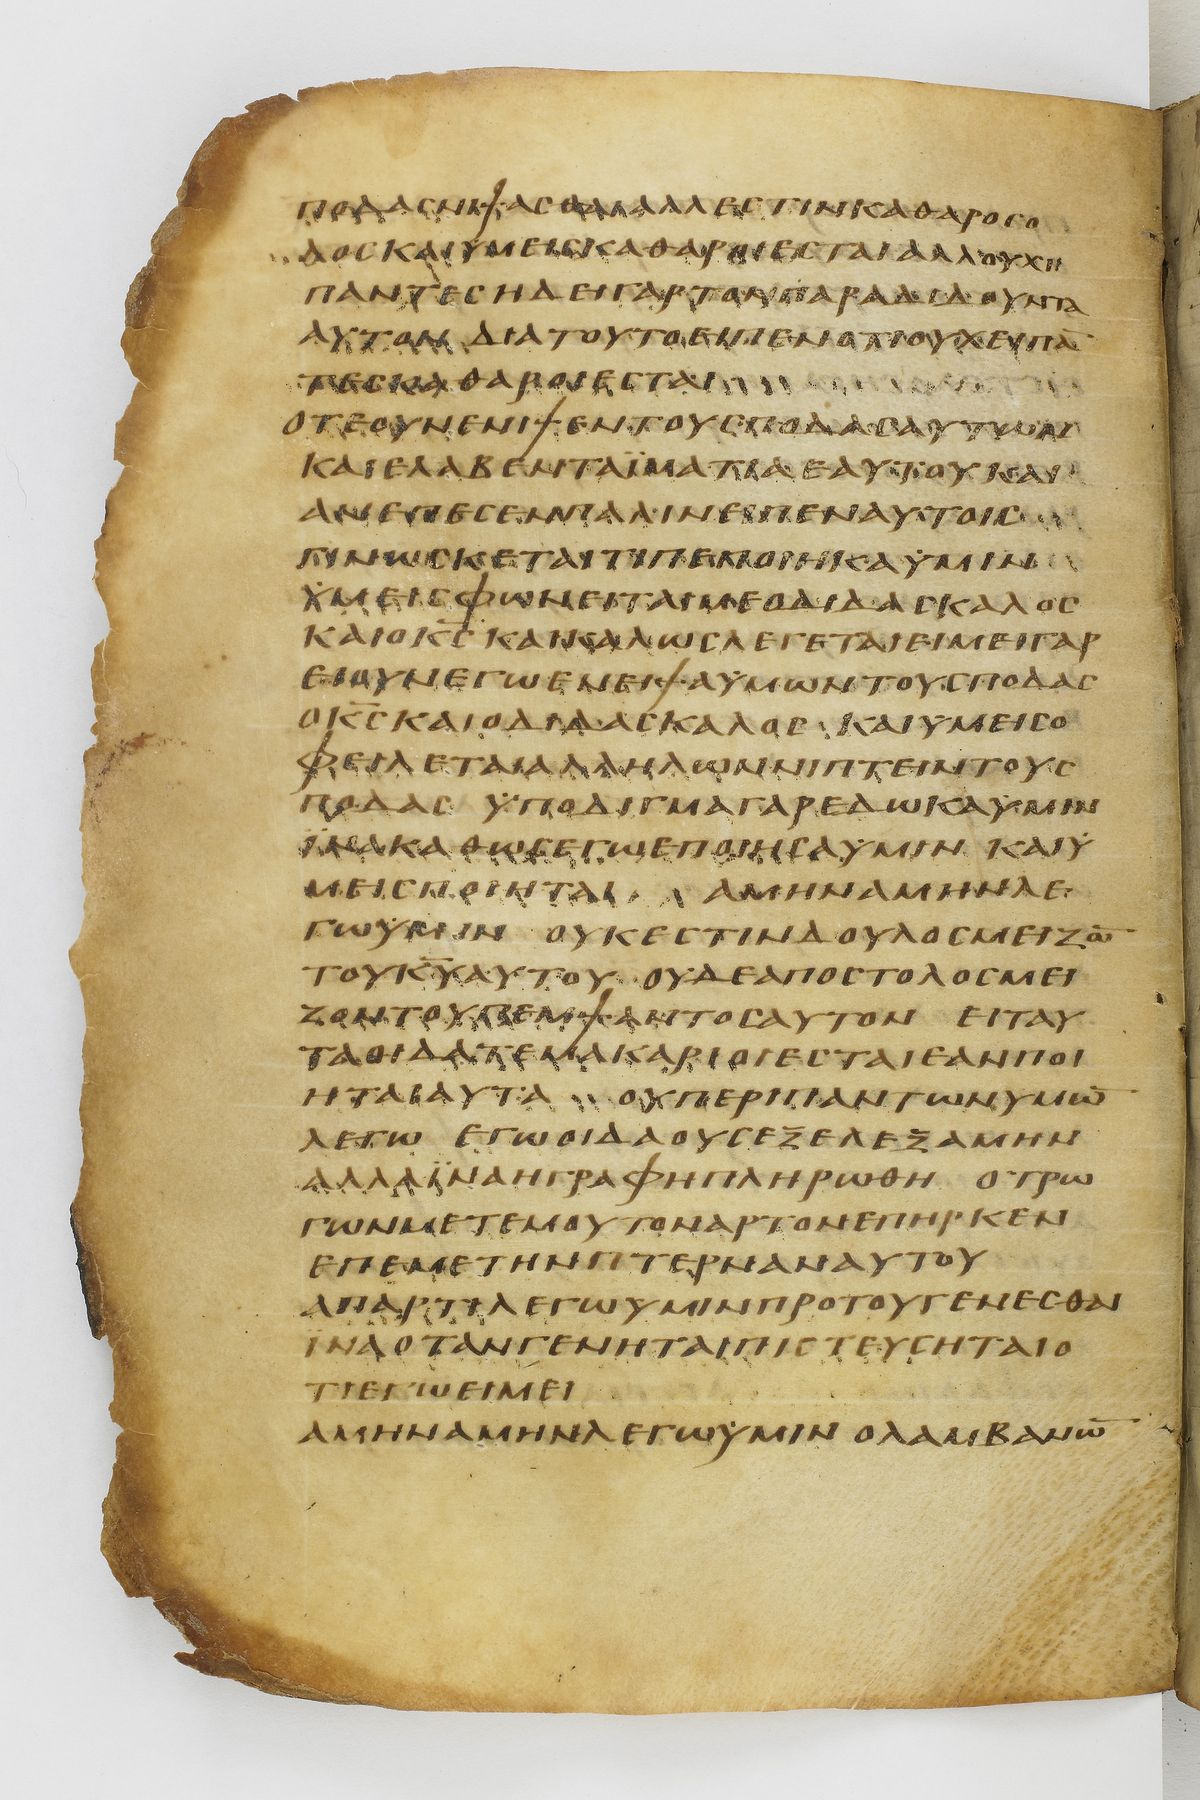 ποδαϲνιψαϲθαιαλλεϲτινκαθαροϲο
λοϲκαιϋμειϲκαθαροιεϲταιαλλουχι
παντεϲηδειγαρτονπαραδιδουντα
αυτονδιατουτοειπενοτιουχειπα̅
τεϲκαθαροιεϲται
οτεουνενιψεντουϲποδαϲαυτων
καιελαβενταϊματιαεαυτουκαι
ανεπεϲενπαλινειπεναυτοιϲ
γινωϲκεταιτιπεποιηκαϋμιν
ϋμειϲφωνειταιμεοδιδαϲκαλοϲ
καιοκ̅ϲ̅καικαλωϲλεγεταιειμειγαρ
ειουνεγωενειψαϋμωντουϲποδαϲ
οκ̅ϲ̅καιοδιδαϲκαλοϲ καιυμειϲο
φειλεταιαλληλωννιπτειντουϲ
ποδαϲ ϋποδιγμαγαρεδωκαϋμιν
ϊνακαθωϲεγωεποιηϲαϋμιν καιϋ
μειϲποιηται αμηναμηνλε
γωϋμιν ουκεϲτινδουλοϲμειζω̅
τουκ̅υ̅αυτου ουδεαποϲτολοϲμει
ζοντουπεμψαντοϲαυτον ειταυ
ταοιδατεμακαριοιεϲταιεανποι
ηταιαυτα ουπεριπαντωνυμω̅
λεγω εγωοιδαουϲεξελεξαμην
αλλαϊναηγραφηπληρωθη οτρω
γωνμετεμουτοναρτονεπηρκεν
επεμετηνπτερναναυτου
απαρτιλεγωυμινπροτουγενεϲθαι
ϊναοτανγενηταιπιϲτευϲηταιο
τιεγωειμει
αμηναμηνλεγωϋμιν ολαμβανω̅